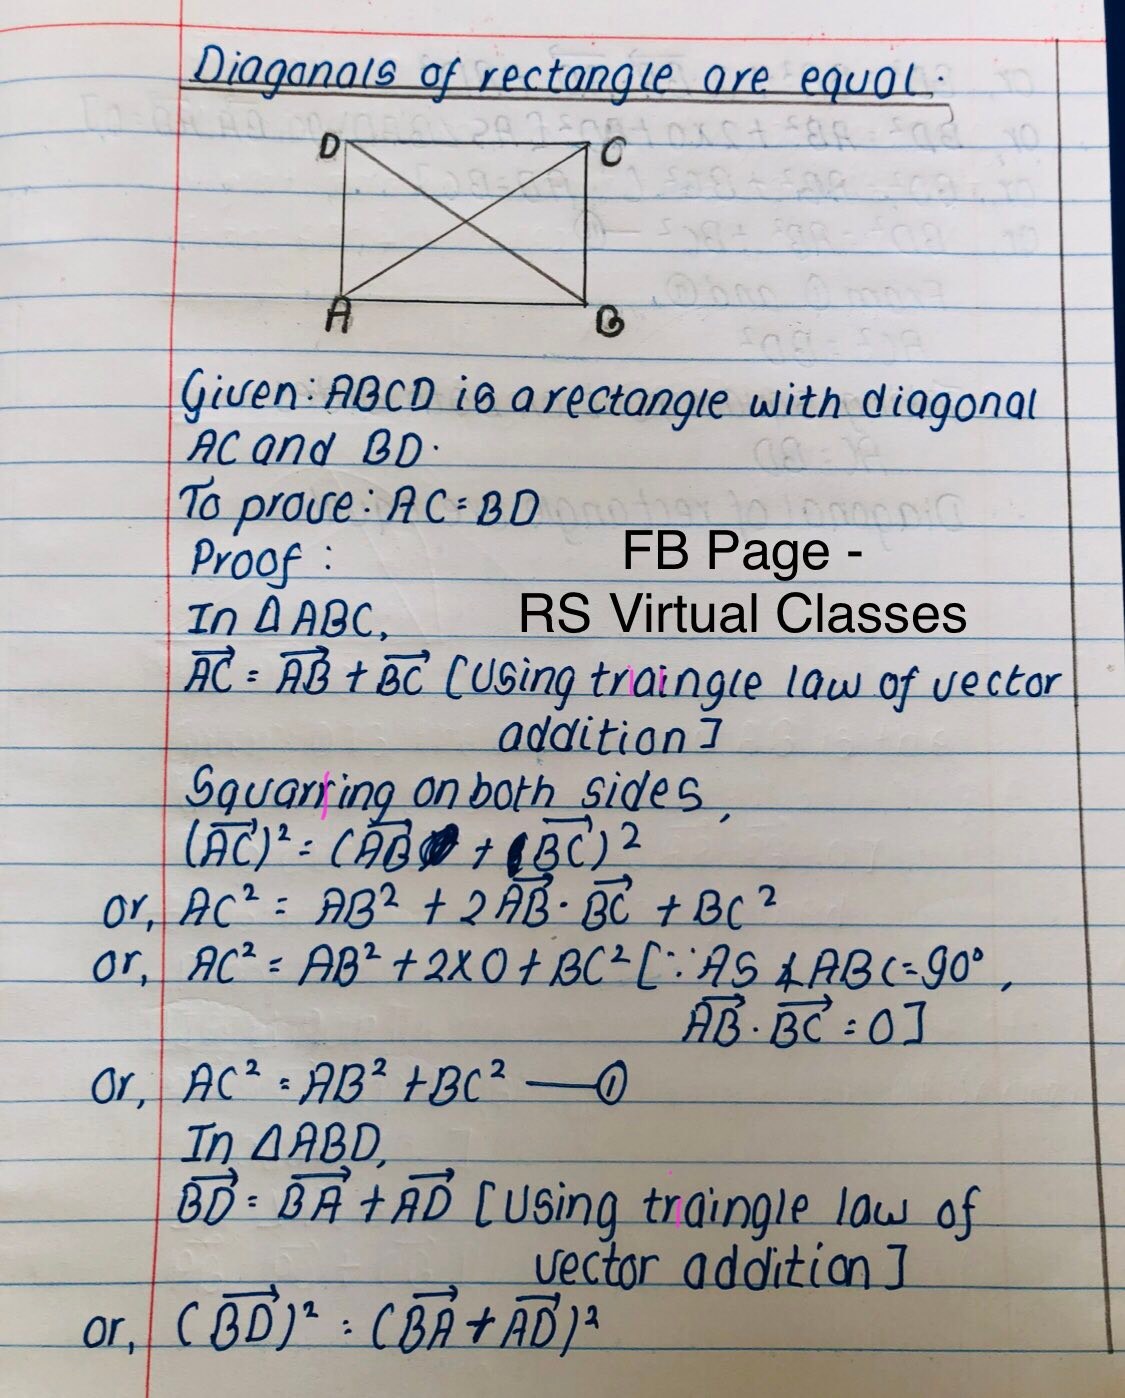 Diagonals of rectangle are equal.
D C
A B
Given: ABCD is a rectangle with diagonal
AC and BD.
To prove: AC = BD
Proof :
FB Page -
In ΔABC,
RS Virtual Classes
→AC = →AB + →BC [Using traingle law of vector
addition]
Squarring on both sides,
(→AC)² = (→AB + (→BC)²
or, AC² = AB² + 2→AB · →BC + BC²
or, AC² = AB² + 2×0 + BC² [∵ As ∡ABC = 90°,
→AB · →BC = 0]
or, AC² = AB² + BC² — ①
In ΔABD,
→BD = →BA + →AD [Using traingle law of
vector addition]
or, (→BD)² = (→BA + →AD)²